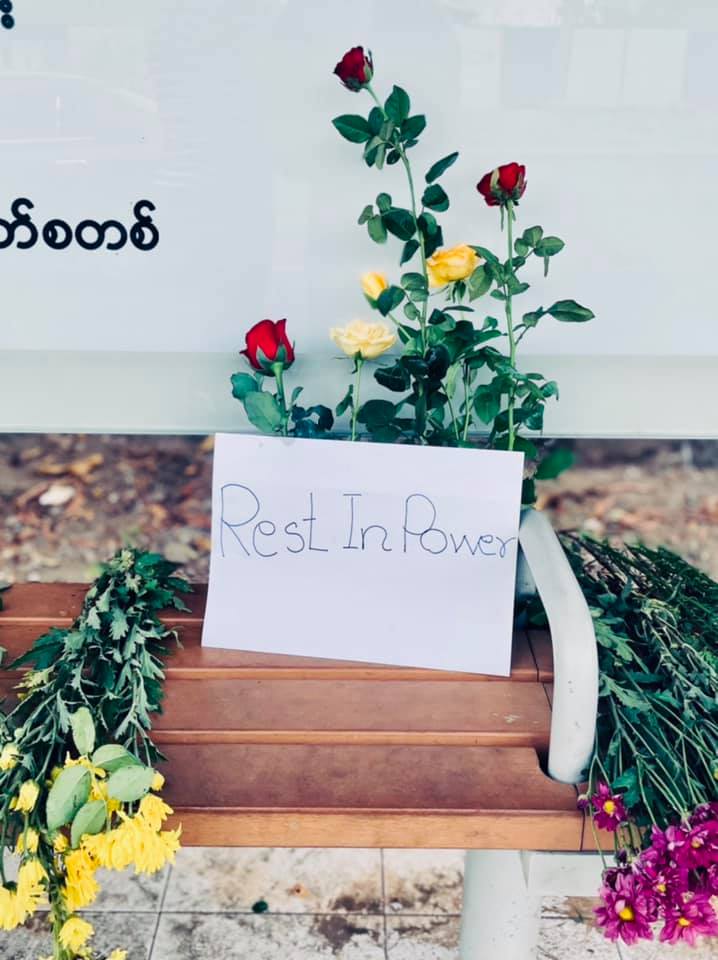 တ်စတစ်
Rest In Power